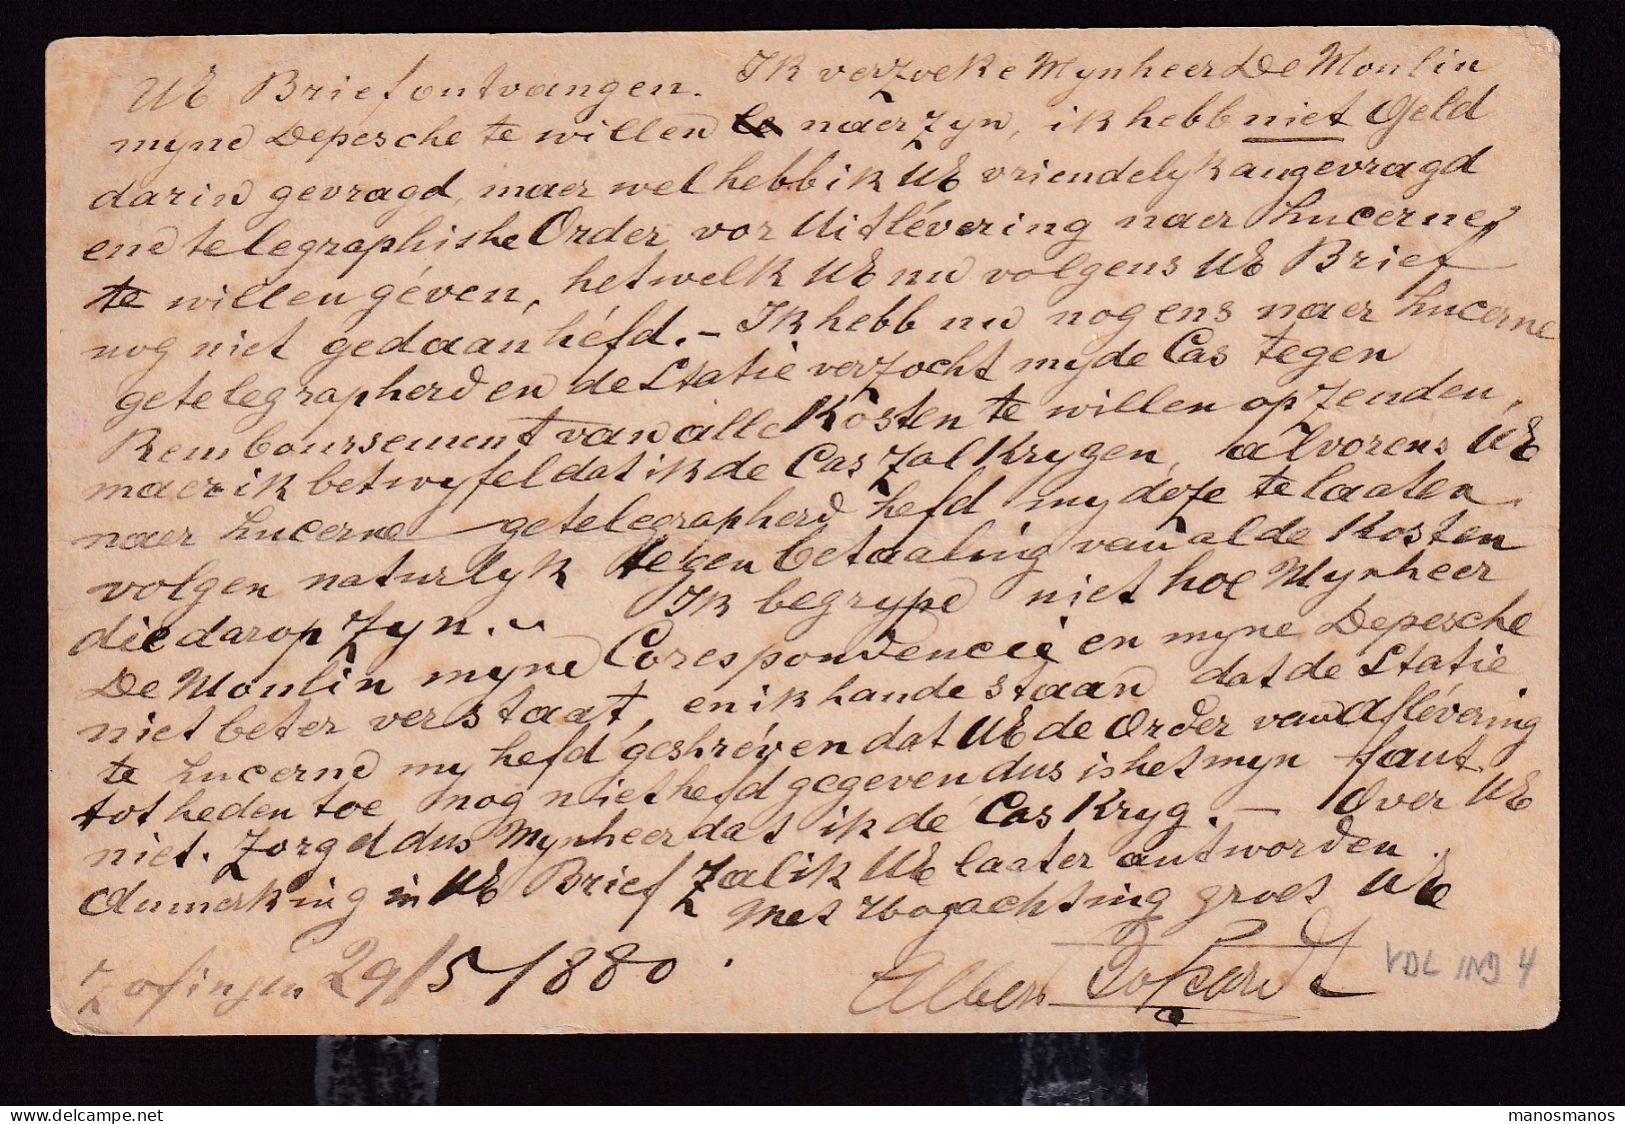 UE Brief ontvangen. Ik verzoeke Mynheer De Moulin
myne Depesche te willen naerzyn, ik hebb niet Geld
darin gevragd, maer wel hebb ik UE vriendelyk angevragd
ene telegraphishe Order vor Uitlévering naer Lucerne
te willen géven, hetwelk UE nu volgens UE Brief
nog niet gedaan héfd. - Ik hebb nu nog ens naer Lucerne
getelegrapherd en de Statie verzocht my de Cas tegen
Remboursement van alle Kosten te willen opzenden,
maer ik betwyfel dat ik de Cas zal krygen, alvorens UE
naer Lucerne getelegrapherd hefd my deze te laaten
volgen naturlyk tegen betaaling van al de Kosten
die darop zyn. Ik begrype niet hoe Mynheer
De Moulin myne Corespondencie en myne Depesche
niet beter verstaat, en ik hande staan dat de Statie
te Lucerne my hefd geshréven dat UE de Order van Aflévering
tot heden toe nog niet hefd gegeven dus is het myn faut
niet. Zorgd dus Mynheer dat ik de Cas kryg. - Over UE
Anmerking in UE Brief zal ik UE laater antworden.
Met Hogachting groet UE
Zofingen 29/5/1880.
Albert
VDL IND 4
manosmanos